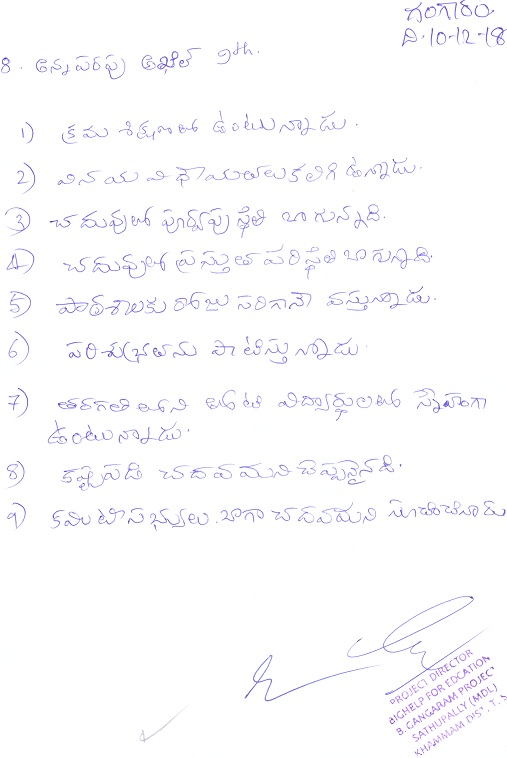 గంగారం
ది.10-12-18
8. అన్నపరపు అఖిల్ 9th.
1) క్రమ శిక్షణలో ఉంటున్నాడు.
2) వినయ విధేయతలు కలిగి ఉన్నాడు.
3) చదువులో పూర్వపు స్థితి బాగున్నది.
4) చదువులో ప్రస్తుత పరిస్థితి బాగున్నది.
5) పాఠశాలకు రోజు సరిగానే వస్తున్నాడు.
6) పరిశుభ్రతను పాటిస్తున్నాడు.
7) తరగతిలోని తోటి విద్యార్థులతో స్నేహంగా
ఉంటున్నాడు.
8) కష్టపడి చదవమని చెప్పనైనది.
9) కమిటి సభ్యులు. బాగా చదవమని సూచించినారు
PROJECT DIRECTOR
BIGHELP FOR EDCATION
B. GANGARAM PROJECT
SATHUPALLY (MDL)
KHAMMAM DIST. T.S